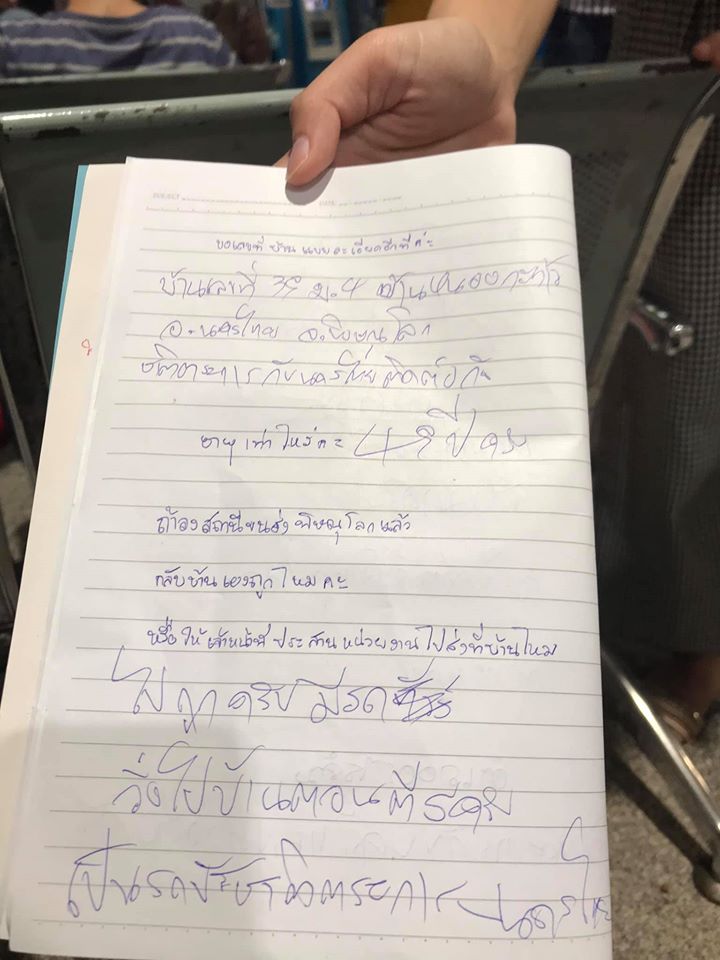 SUBJECT DATE
ขอเลขที่ บ้าน แบบละเอียดอีกทีค่ะ
บ้านเลขที่ 39 ม.4 บ้านหนองกะท้าว
อ.นครไทย จ.พิษณุโลก
ชาติตระการกับนครไทยติดต่อกัน
อายุ เท่าไหร่คะ 48 ปี ครับ
ถ้าลงสถานีขนส่ง พิษณุโลก แล้ว
กลับบ้าน เองถูกไหมคะ
หรือ ให้เจ้าหน้าที่ ประสาน หน่วยงาน ไปส่งที่บ้านไหม
ไปถูกครับ มีรถ
วิ่งไปบ้านตอนตี 5 ครับ
เป็นรถ ชาติตระการ - นครไทย